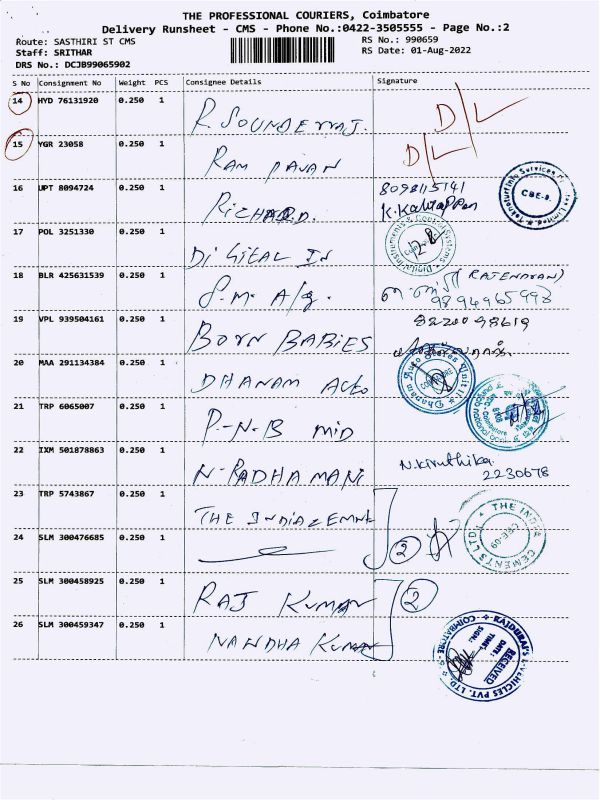 THE PROFESSIONAL COURIERS, Coimbatore
Delivery Runsheet - CMS - Phone No.:0422-3505555 - Page No.:2
Route: SASTHIRI ST CMS
RS No.: 990659
Staff: SRITHAR
RS Date: 01-Aug-2022
DRS No.: DCJB99065902
S No Consignment No Weight PCS Consignee Details Signature
14 HYD 76131920 0.250 1
R. SOUNDERRAJ. D/L
15 YGR 23058 0.250 1
RAM PAVAN D/L
16 UPT 8094724 0.250 1 8098115141
RICHARD. K. Kaliappan
CBE-9.
17 POL 3251330 0.250 1
DIGITAL IN
18 BLR 425631539 0.250 1 (RAJENDRAN)
S.M. A/g. 9894965998
19 VPL 939504161 0.250 1 8220098619
BORN BABIES
20 MAA 291134384 0.250 1
DHANAM AUTO
COIMBATORE
21 TRP 6065007 0.250 1
P-N-B MID
22 IXM 501878863 0.250 1 N.Kiruthika.
N-RADHAMANI 2230678
23 TRP 5743867 0.250 1
THE INDIA CEMNT
THE INDIA CEMENTS LTD
CBE-09
24 SLM 300476685 0.250 1
2
25 SLM 300458925 0.250 1
RAJ KUMAR 2
26 SLM 300459347 0.250 1
NANDHA KUMAR
RAJDURAI'S VEHICLES PVT. LTD. COIMBATORE - 9
RECEIVED
DATE:
TIME:
SIGN: